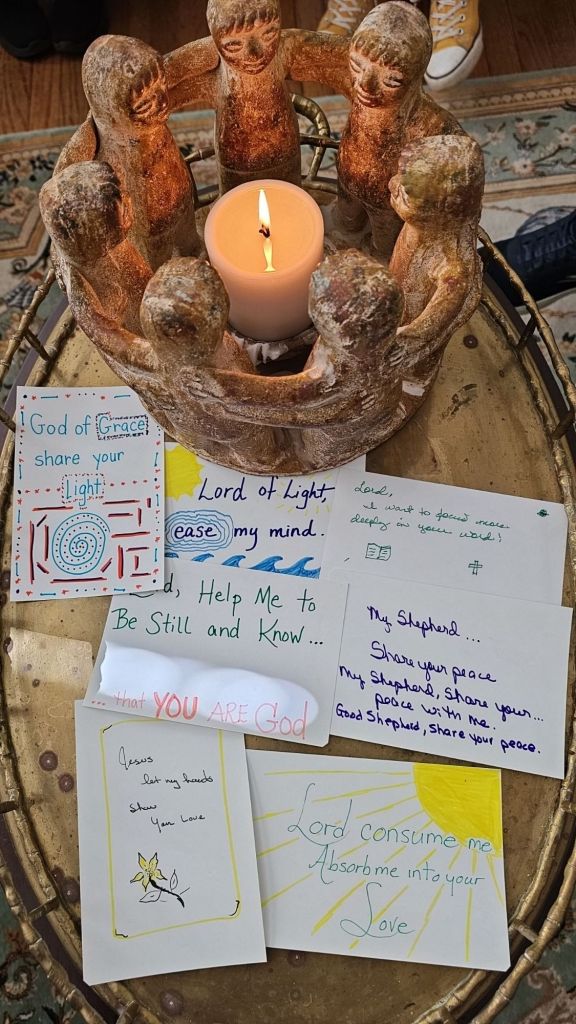 God of Grace
share your
Light
Lord of Light,
ease my mind.
Lord,
I want to focus more
deeply in your word!
Help Me to
Be Still and Know...
... that YOU ARE God
My Shepherd...
Share your peace
My Shepherd, Share your...
peace with me.
Good Shepherd, share your peace.
Jesus
let my hands
Show
Your Love
Lord consume me
Absorb me into your
Love